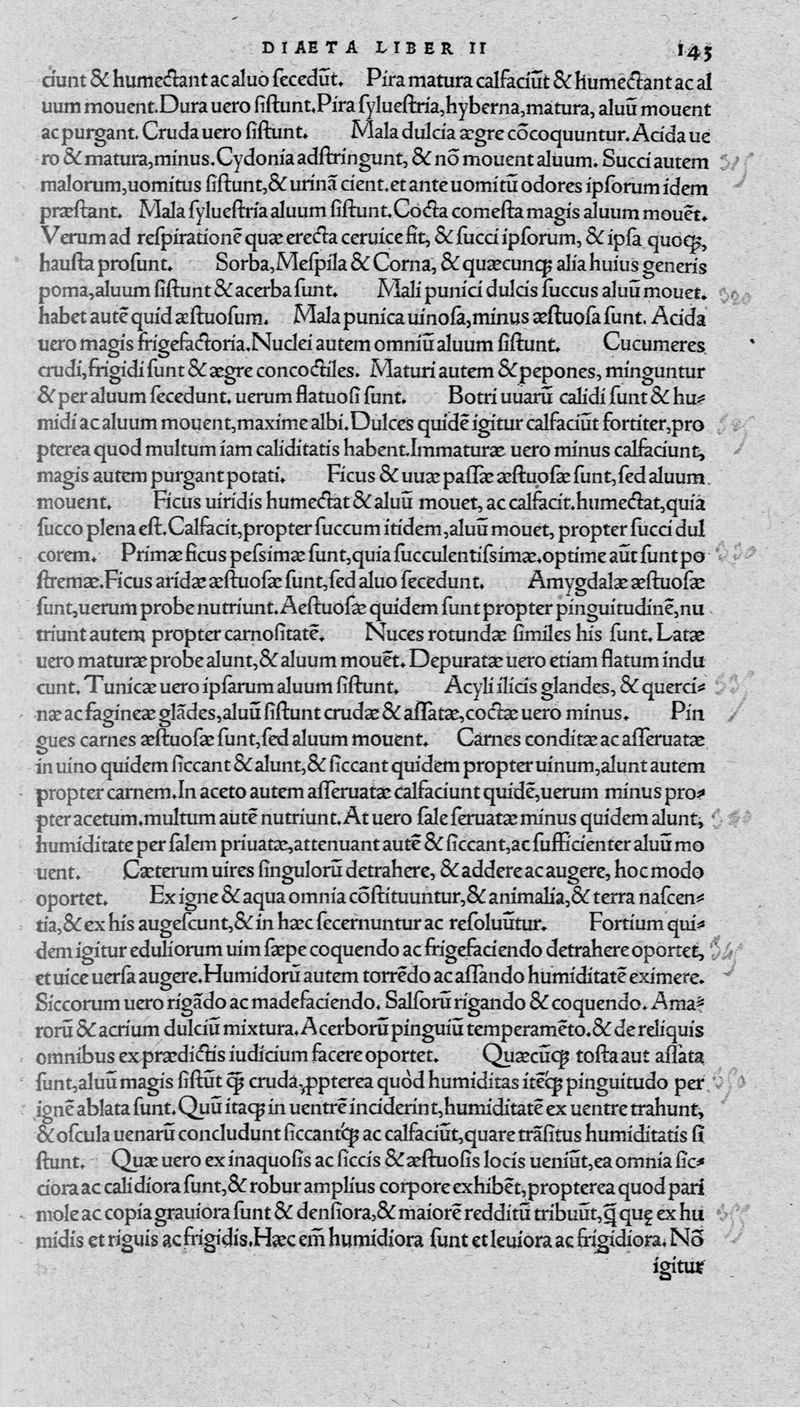 DIAETA LIBER II 145
ciunt & humectant ac aluo ſecedūt. Pira matura calfaciūt & humectant ac al
uum mouent. Dura uero ſiſtunt. Pira ſylueſtria, hyberna, matura, aluū mouent
ac purgant. Cruda uero ſiſtunt. Mala dulcia ægre cōcoquuntur. Acida ue
ro & matura, minus. Cydonia adſtringunt, & nō mouent aluum. Succi autem
malorum, uomitus ſiſtunt, & urinā cient. et ante uomitū odores ipſorum idem
præſtant. Mala ſylueſtria aluum ſiſtunt. Cocta comeſta magis aluum mouēt.
Verum ad reſpirationē quæ erecta ceruice fit, & ſucci ipſorum, & ipſa quoqꝫ,
hauſta proſunt. Sorba, Meſpila & Corna, & quæcunqꝫ alia huius generis
poma, aluum ſiſtunt & acerba ſunt. Mali punici dulcis ſuccus aluū mouet.
habet autē quid æſtuoſum. Mala punica uinoſa, minus æſtuoſa ſunt. Acida
uero magis frigefactoria. Nuclei autem omniū aluum ſiſtunt. Cucumeres
crudi, frigidi ſunt & ægre concoctiles. Maturi autem & pepones, minguntur
& per aluum ſecedunt. uerum flatuoſi ſunt. Botri uuarū calidi ſunt & hu⸗
midi ac aluum mouent, maxime albi. Dulces quidē igitur calfaciūt fortiter, pro
pterea quod multum iam caliditatis habent. Immaturæ uero minus calfaciunt,
magis autem purgant potati. Ficus & uuæ paſſæ æſtuoſæ ſunt, ſed aluum
mouent. Ficus uiridis humectat & aluū mouet, ac calfacit. humectat, quia
ſucco plena eſt. Calfacit, propter ſuccum itidem, aluū mouet, propter ſucci dul
corem. Primæ ficus peſsimæ ſunt, quia ſucculentiſsimæ. optime aūt ſunt po
ſtremæ. Ficus aridæ æſtuoſæ ſunt, ſed aluo ſecedunt. Amygdalæ æſtuoſæ
ſunt, uerum probe nutriunt. Aeſtuoſæ quidem ſunt propter pinguitudinē, nu
triunt autem propter carnoſitatē. Nuces rotundæ ſimiles his ſunt. Latæ
uero maturæ probe alunt, & aluum mouēt. Depuratæ uero etiam flatum indu
cunt. Tunicæ uero ipſarum aluum ſiſtunt. Acyli ilicis glandes, & querci⸗
næ ac fagineæ glādes, aluū ſiſtunt crudæ & aſſatæ, coctæ uero minus. Pin
gues carnes æſtuoſæ ſunt, ſed aluum mouent. Carnes conditæ ac aſſeruatæ
in uino quidem ſiccant & alunt, & ſiccant quidem propter uinum, alunt autem
propter carnem. In aceto autem aſſeruatæ calfaciunt quidē, uerum minus pro⸗
pter acetum. multum autē nutriunt. At uero ſale ſeruatæ minus quidem alunt,
humiditate per ſalem priuatæ, attenuant autē & ſiccant, ac ſufficienter aluū mo
uent. Cæterum uires ſingulorū detrahere, & addere ac augere, hoc modo
oportet. Ex igne & aqua omnia cōſtituuntur, & animalia, & terra naſcen⸗
tia, & ex his augeſcunt, & in hæc ſecernuntur ac reſoluūtur. Fortium qui⸗
dem igitur eduliorum uim ſæpe coquendo ac frigefaciendo detrahere oportet,
et uice uerſa augere. Humidorū autem torrēdo ac aſſando humiditatē eximere.
Siccorum uero rigādo ac madefaciendo. Salſorū rigando & coquendo. Ama⸗
rorū & acrium dulciū mixtura. Acerborū pinguiū temperamēto. & de reliquis
omnibus ex prædictis iudicium facere oportet. Quæcūqꝫ toſta aut aſſata
ſunt, aluū magis ſiſtūt q̄ꝫ cruda, ꝓpterea quòd humiditas itēqꝫ pinguitudo per
ignē ablata ſunt. Quū itaqꝫ in uentrē inciderint, humiditatē ex uentre trahunt,
& oſcula uenarū concludunt ſiccantqꝫ ac calfaciūt, quare trāſitus humiditatis ſi
ſtunt. Quæ uero ex inaquoſis ac ſiccis & æſtuoſis locis ueniūt, ea omnia ſic⸗
ciora ac calidiora ſunt, & robur amplius corpore exhibēt, propterea quod pari
mole ac copia grauiora ſunt & denſiora, & maiorē redditū tribuūt, q̄ quę ex hu
midis et riguis ac frigidis. Hæc em̄ humidiora ſunt et leuiora ac frigidiora. Nō
igitur